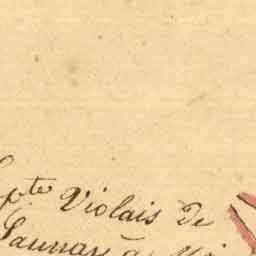 pte Violais De
Launay à